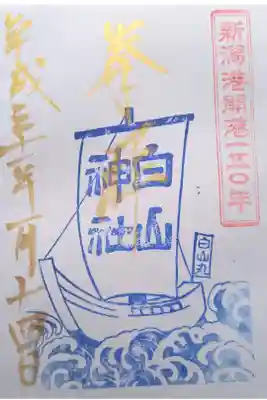 新潟港開港一五〇年
奉拝
白山
神社
白山丸
平成三十一年一月十四日